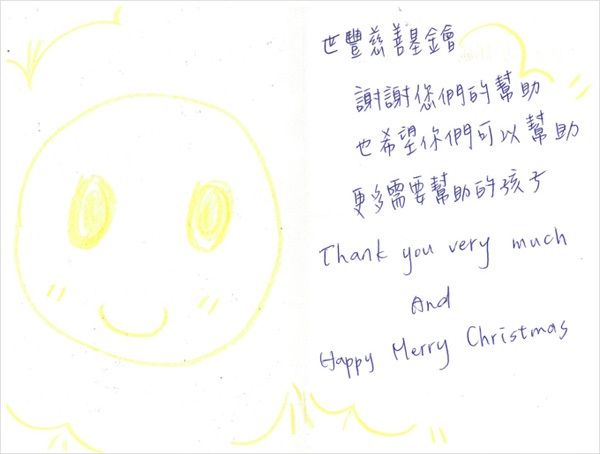 世豐慈善基金會
謝謝您們的幫助
也希望你們可以幫助
更多需要幫助的孩子
Thank you very much
And
Happy Merry Christmas